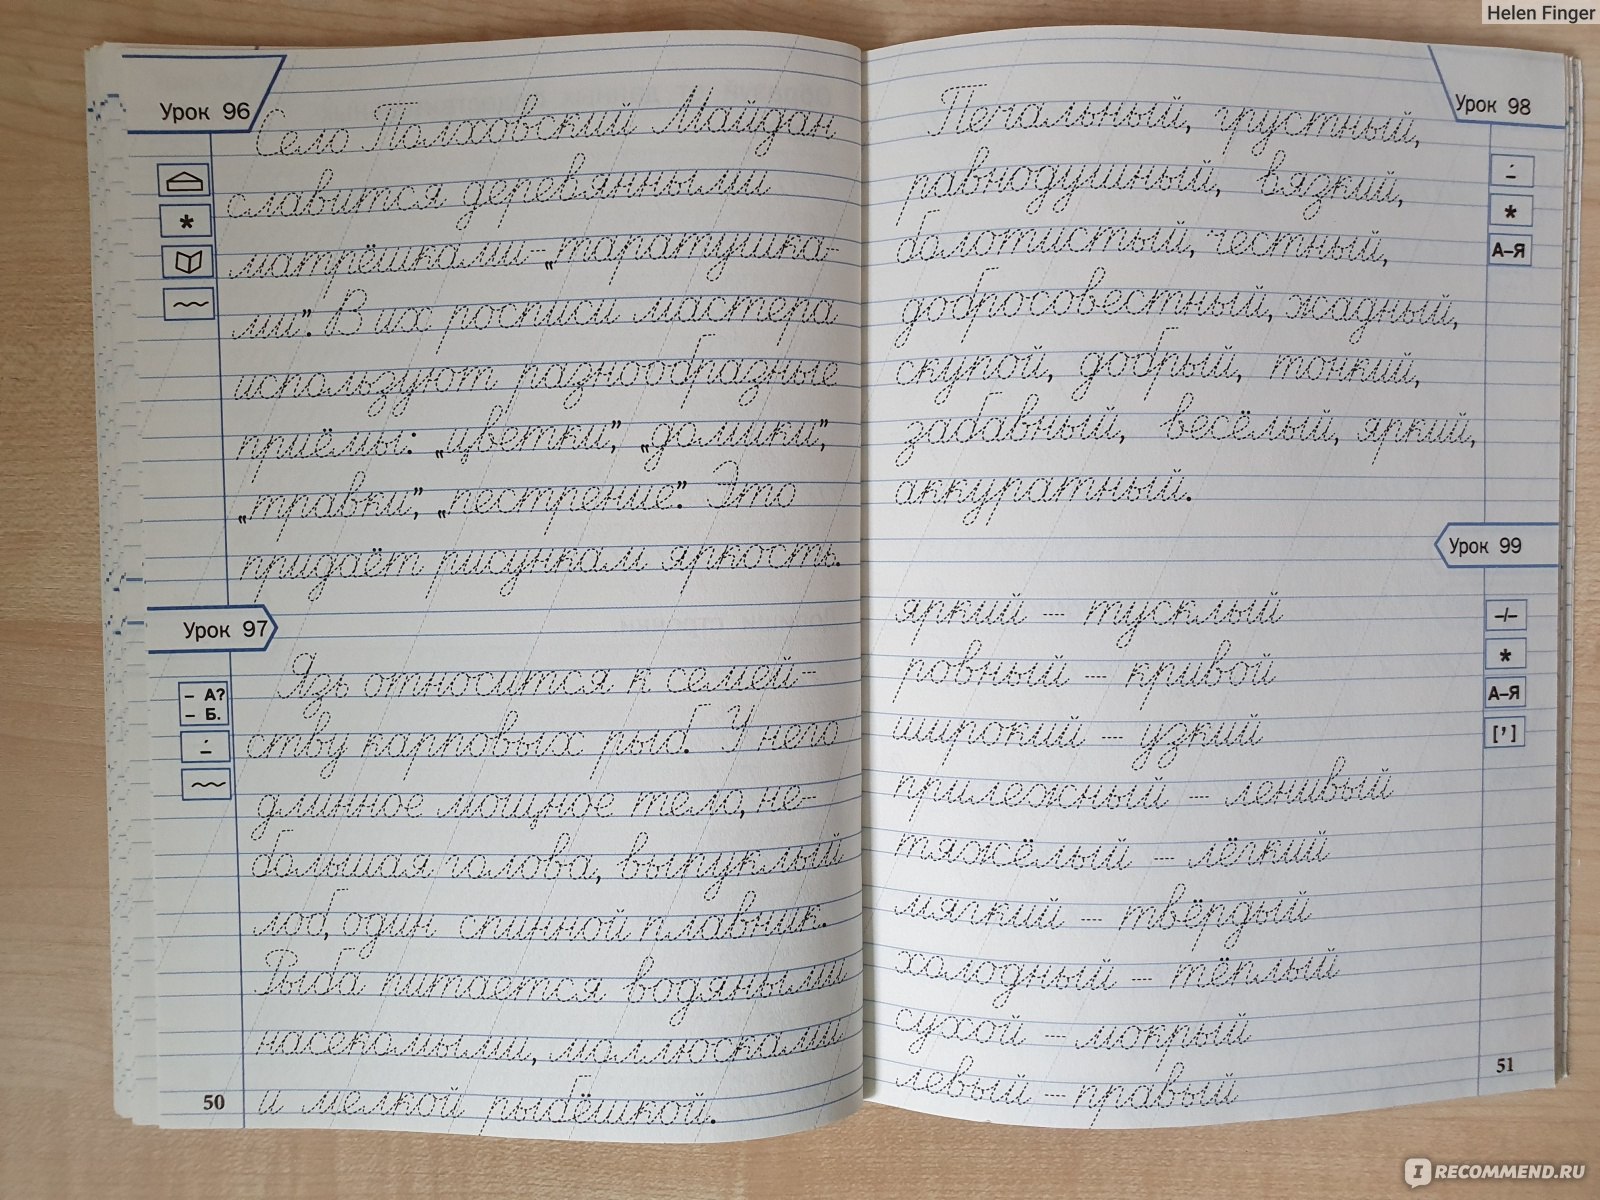 Helen Finger
Урок 96
Село Полховский Майдан
славится деревянными
матрёшками-„таратушка-
ми”. В их росписи мастера
используют разнообразные
приёмы: „цветки”, „домики”,
„травки”, „пестрение”. Это
придаёт рисункам яркость.
Урок 97
- А?
- Б.
Язь относится к семей-
ству карповых рыб. У него
длинное мощное тело, не-
большая голова, выпуклый
лоб, один спинной плавник.
Рыба питается водяными
насекомыми, моллюсками
и мелкой рыбёшкой.
50
Урок 98
А-Я
Печальный, грустный,
равнодушный, вязкий,
болотистый, честный,
добросовестный, жадный,
скупой, добрый, тонкий,
забавный, весёлый, яркий,
аккуратный.
Урок 99
А-Я
[,]
яркий — тусклый
ровный — кривой
широкий — узкий
прилежный — ленивый
тяжёлый — лёгкий
мягкий — твёрдый
холодный — тёплый
сухой — мокрый
левый — правый
51
IRECOMMEND.RU